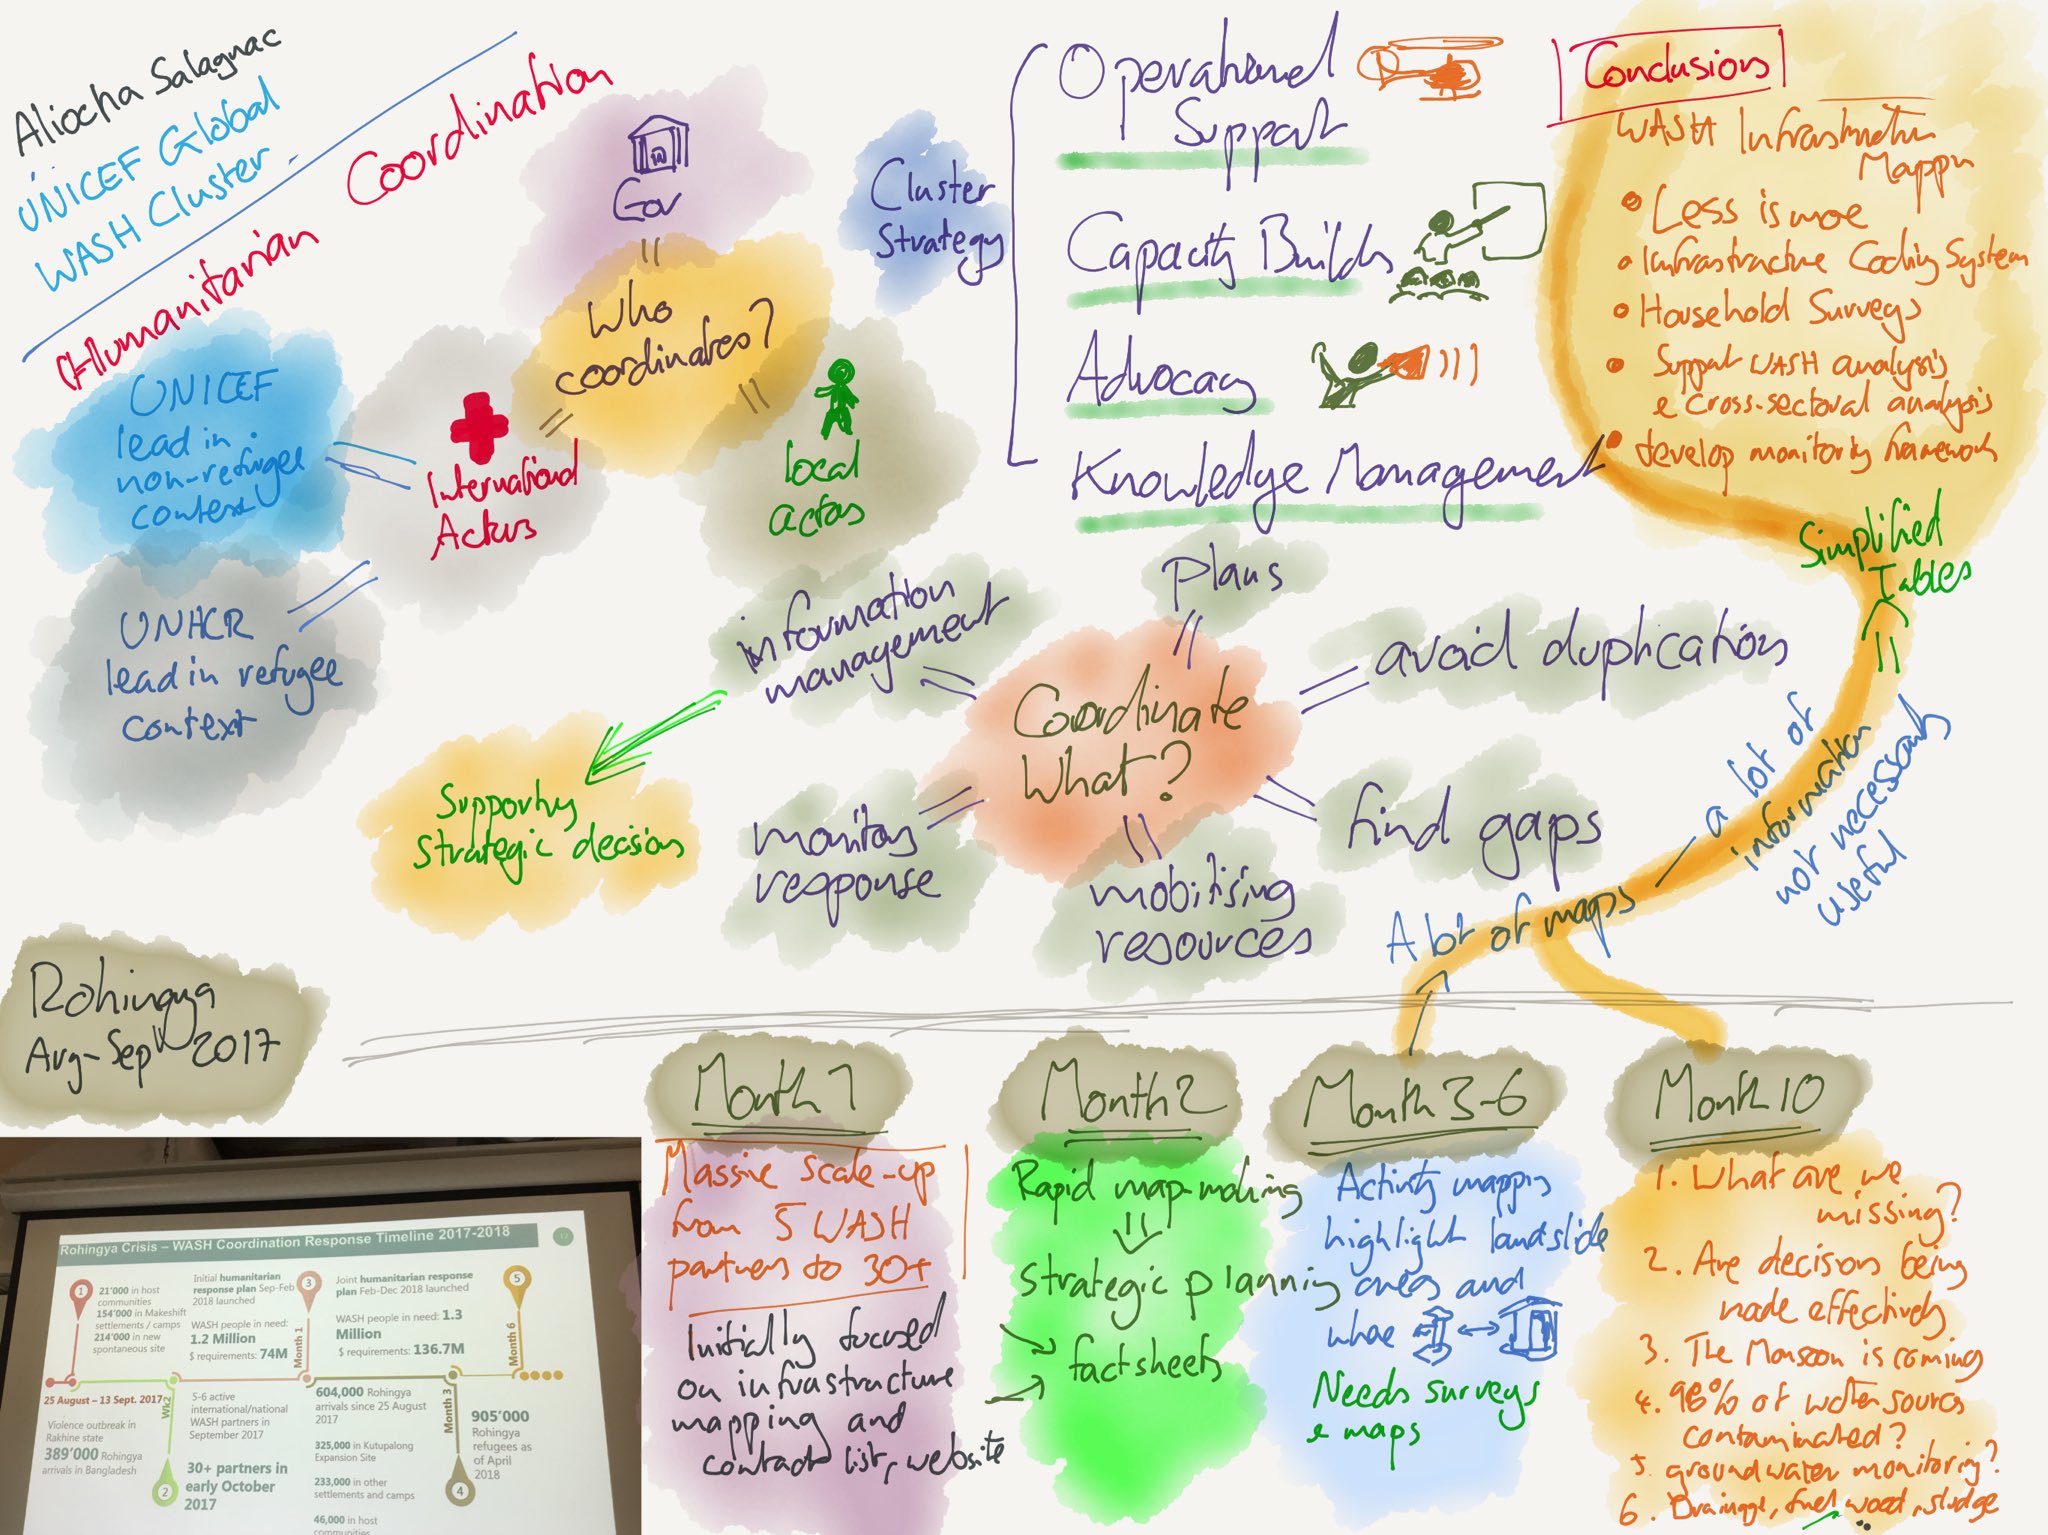 Aliocha Salagnac
UNICEF Global
WASH Cluster
Humanitarian Coordination
Gov
Who
coordinates?
UNICEF
lead in
non-refugee
context
International
Actors
local
actors
UNHCR
lead in refugee
context
Cluster
Strategy
Operational
Support
Capacity Buildg
Advocacy
Knowledge Management
Conclusions
WASH Infrastructure
Mapping
Less is more
Infrastructure Coding System
Household Surveys
Support WASH analysis
& cross-sectoral analysis
develop monitoring framework
Simplified
Tables
Coordinate
What?
information
management
Plans
avoid duplication
find gaps
mobilising
resources
monitor
response
Supporting
strategic decisions
A lot of maps
a lot of
information
not necessarily
useful
Rohingya
Aug-Sept 2017
Month 1
Massive scale-up
from 5 WASH
partners to 30+
Initially focused
on infrastructure
mapping and
contact list, website
Month 2
Rapid map-making
strategic planning
factsheets
Month 3-6
Activity mapping
highlight landslide
areas and
where
Needs surveys
& maps
Month 10
1. What are we
missing?
2. Are decisions being
made effectively
3. The Monsoon is coming
4. 98% of water sources
contaminated?
5. groundwater monitoring?
6. Drainage, fuel wood, sludge
Rohingya Crisis – WASH Coordination Response Timeline 2017-2018
12
1
21'000 in host
communities
154'000 in Makeshift
settlements / camps
214'000 in new
spontaneous site
Initial humanitarian
response plan Sep-Feb
2018 launched
WASH people in need:
1.2 Million
$ requirements: 74M
3
Month 1
Joint humanitarian response
plan Feb-Dec 2018 launched
WASH people in need: 1.3
Million
$ requirements: 136.7M
5
Month 6
25 August – 13 Sept. 2017
Violence outbreak in
Rakhine state
389'000 Rohingya
arrivals in Bangladesh
Wk2
2
5-6 active
international/national
WASH partners in
September 2017
30+ partners in
early October
2017
604,000 Rohingya
arrivals since 25 August
2017
325,000 in Kutupalong
Expansion Site
233,000 in other
settlements and camps
46,000 in host
communities
Month 3
4
905'000
Rohingya
refugees as
of April
2018